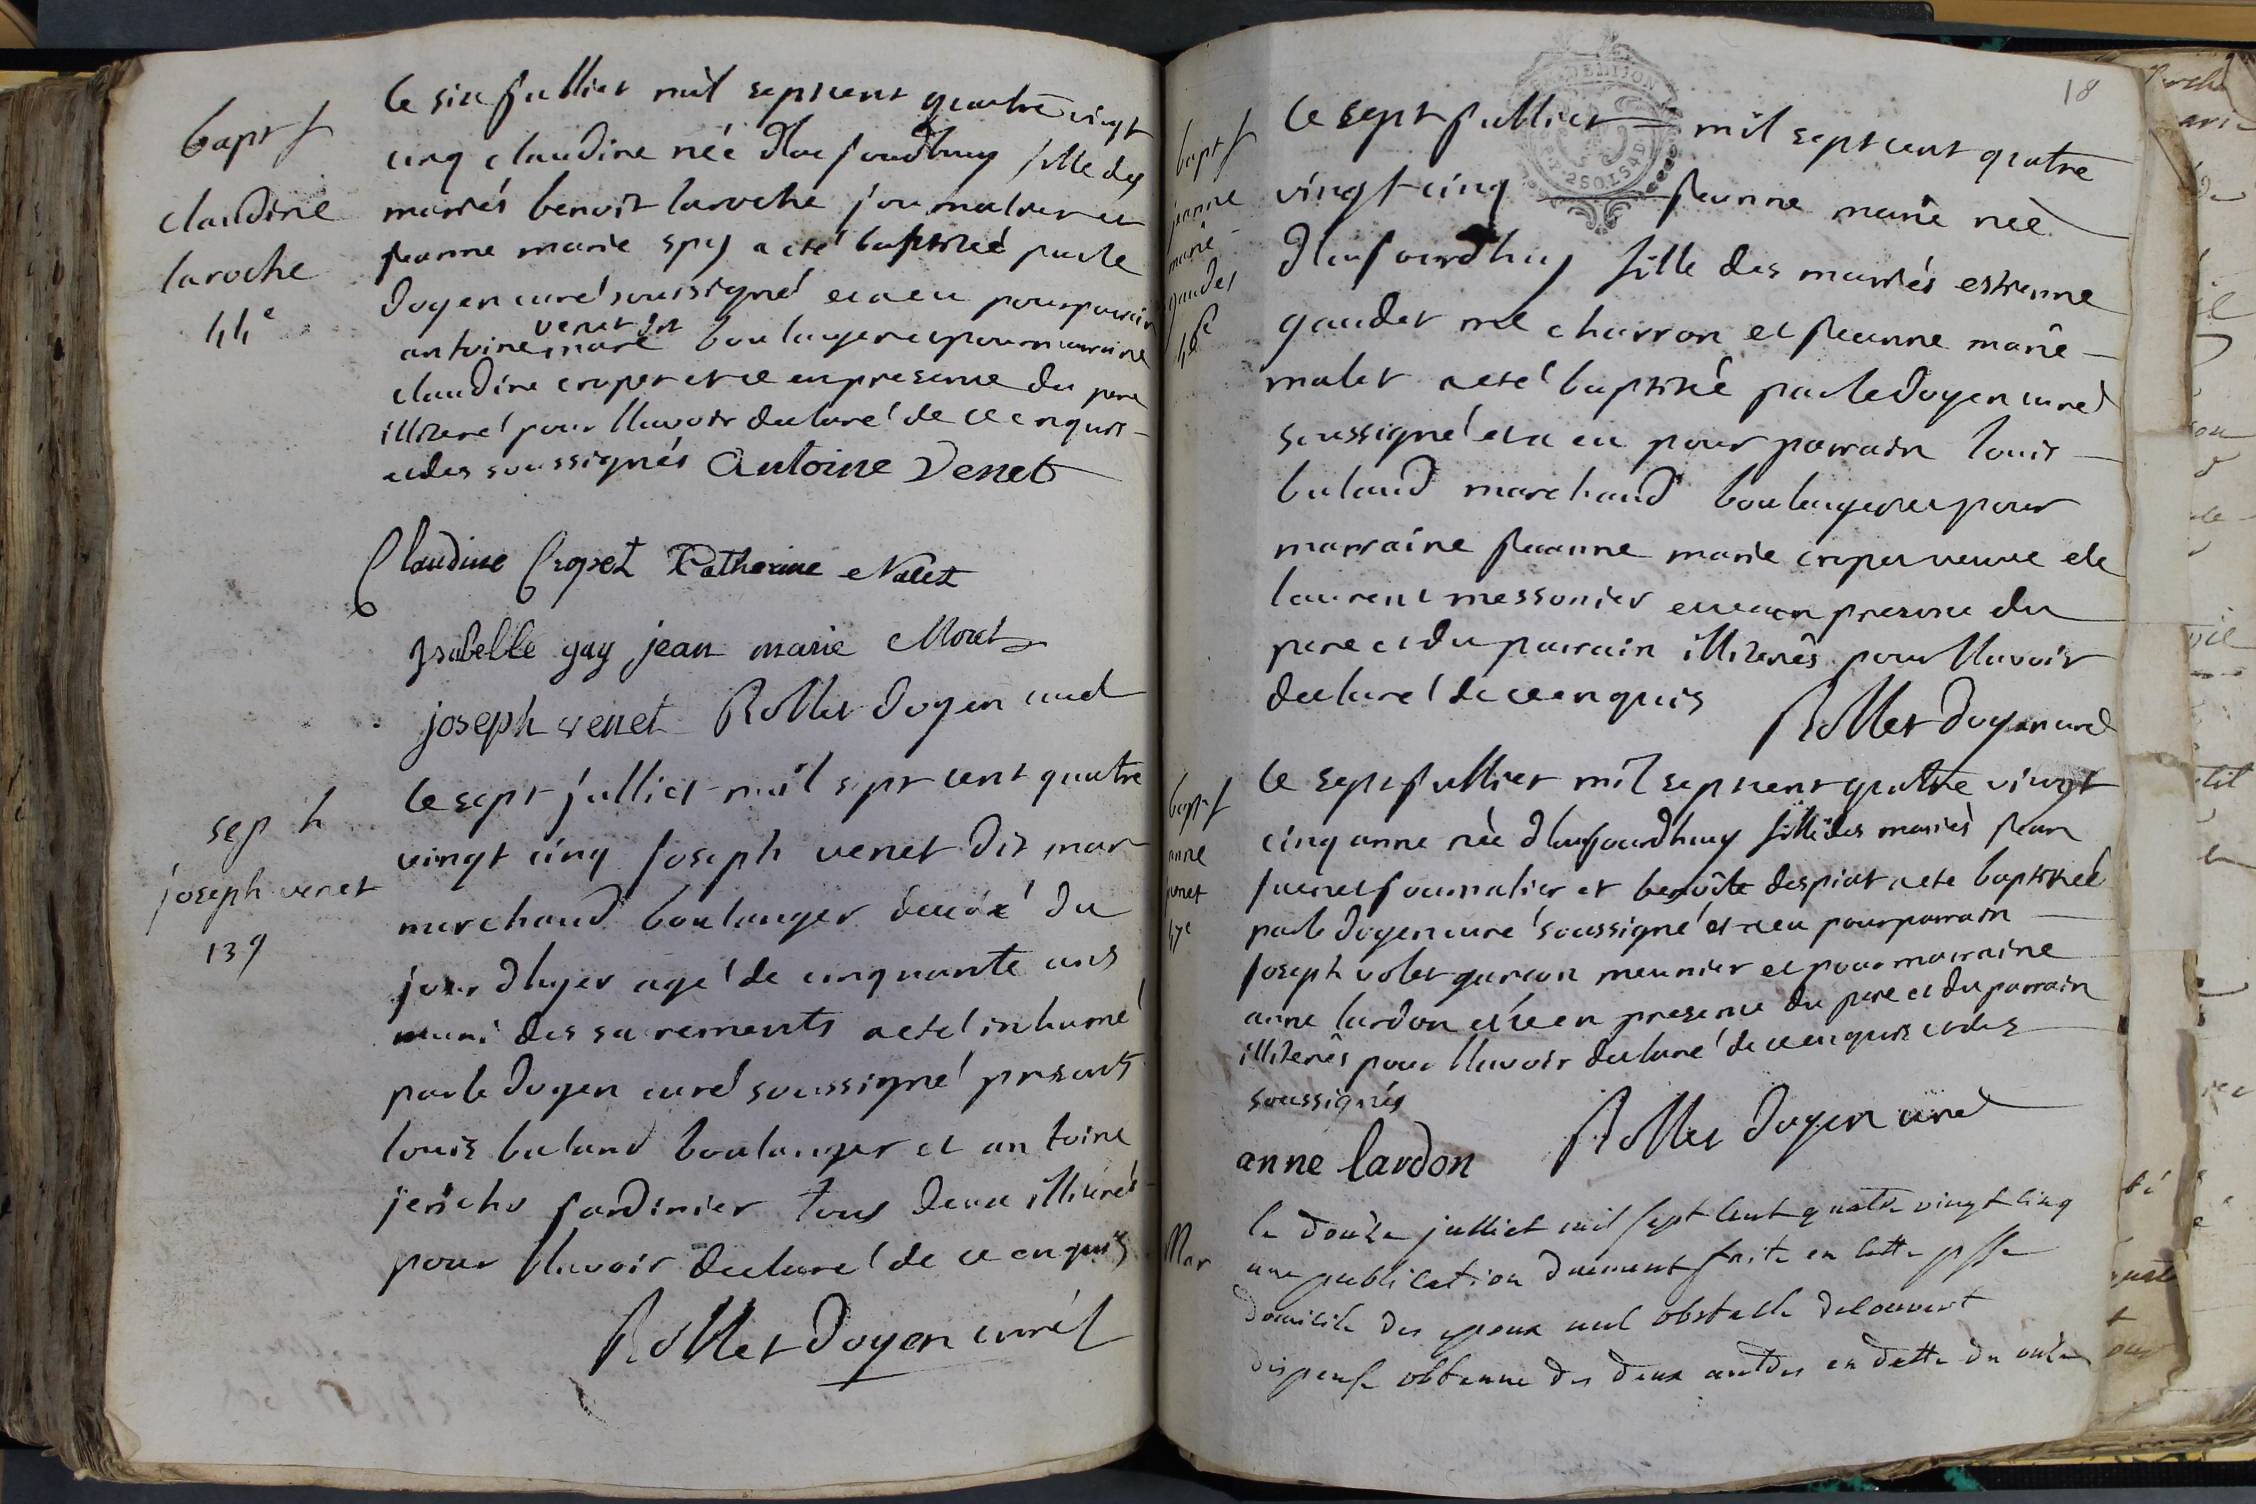 bapt f
claudine
laroche
44e
le six juilliet mil septcent quatre vingt
cinq claudine née d'haujourdhuy fille des
mariés benoit laroche journalier et
jeanne marie spy a eté baptisée par le
doyen curé soussigné et a eu pour parrain
venet dit
antoine mare boulanger et pour marraine
claudine cropet et ce en presence du pere
illiteré pour l'lavoir declaré de ce enquis
et des soussignés Antoine Venet
Claudine Cropet Catherine Nalet
Isabelle guy jean marie Moret
joseph venet Rollet doyen curé
sep h
joseph venet
139
le sept juilliet mil sept cent quatre
vingt cinq joseph venet dit mar
marchand boulanger decedé du
jour d'hyer agé de cinquante ans
muni des sacrements a eté inhumé
par le doyen curé soussigné presents
louis baland boulanger et antoine
jericho jardinier tous deux illiterés
pour l'lavoir declaré de ce enquis
Rollet doyen curé
18
bapt f
jeanne
marie
gaudet
46e
le sept juilliet mil sept cent quatre
vingt cinq jeanne marie née
d'haujourdhuy fille des mariés estienne
gaudet me charron et jeanne marie
malet a eté baptisée par le doyen curé
soussigné et a eu pour parrain louis
baland marchand boulanger et pour
marraine jeanne marie cropet veuve de
laurent messonier et ce en presence du
pere et du parrain illiterés pour l'lavoir
declaré de ce enquis
Rollet doyen curé
bapt f
anne
juenet
47e
le sept juilliet mil sept cent quatre vingt
cinq anne née d'haujourdhuy fille des mariés jean
juenet journalier et benoite despiat a eté baptisée
par le doyen curé soussigné et a eu pour parrain
joseph volet garcon meunier et pour marraine
anne lardon et ce en presence du pere et du parrain
illiterés pour l'lavoir declaré de ce enquis et des
soussignés
anne lardon Rollet doyen curé
Mar
le douze juilliet mil sept cent quatre vingt cinq
une publication duement faite en cette psse
domicile des epoux nul obstacle delouvert
dispense obtenue des deux autres en datte du onze